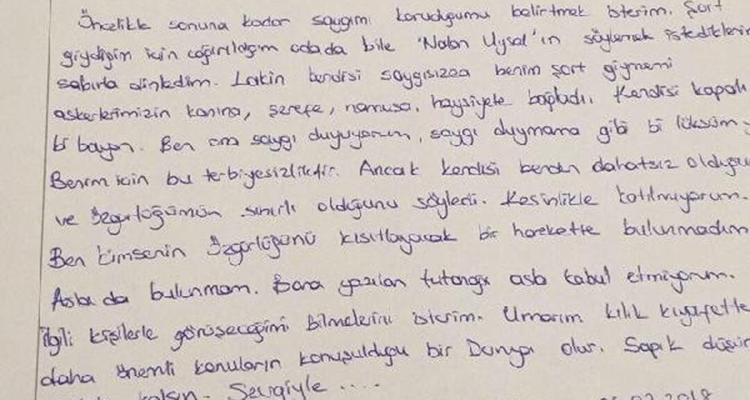 Öncelikle sonuna kadar saygımı koruduğumu belirtmek isterim. Şort
giydiğim için çağırıldığım odada bile 'Nalan Uysal'ın söylemek istediklerin
sabırla dinledim. Lakin kendisi saygısızca benim şort giymemi
askerlerimizin kanına, şerefe, namusa, haysiyete bağladı. Kendisi kapalı
bi bayan. Ben ona saygı duyuyorum, saygı duymama gibi bi lüksüm
Benim için bu terbiyesizliktir. Ancak kendisi benden rahatsız olduğu
ve özgürlüğümün sınırlı olduğunu söyledi. Kesinlikle katılmıyorum.
Ben kimsenin özgürlüğünü kısıtlayacak bir harekette bulunmadım
Asla da bulunmam. Bana yazılan tutanağı asla kabul etmiyorum.
ilgili kişilerle görüşeceğimi bilmelerini isterim. Umarım kılık kıyafette
daha önemli konuların konuşulduğu bir Dünya olur. Sapık düşün
kalsın. Sevgiyle ....
02.2018